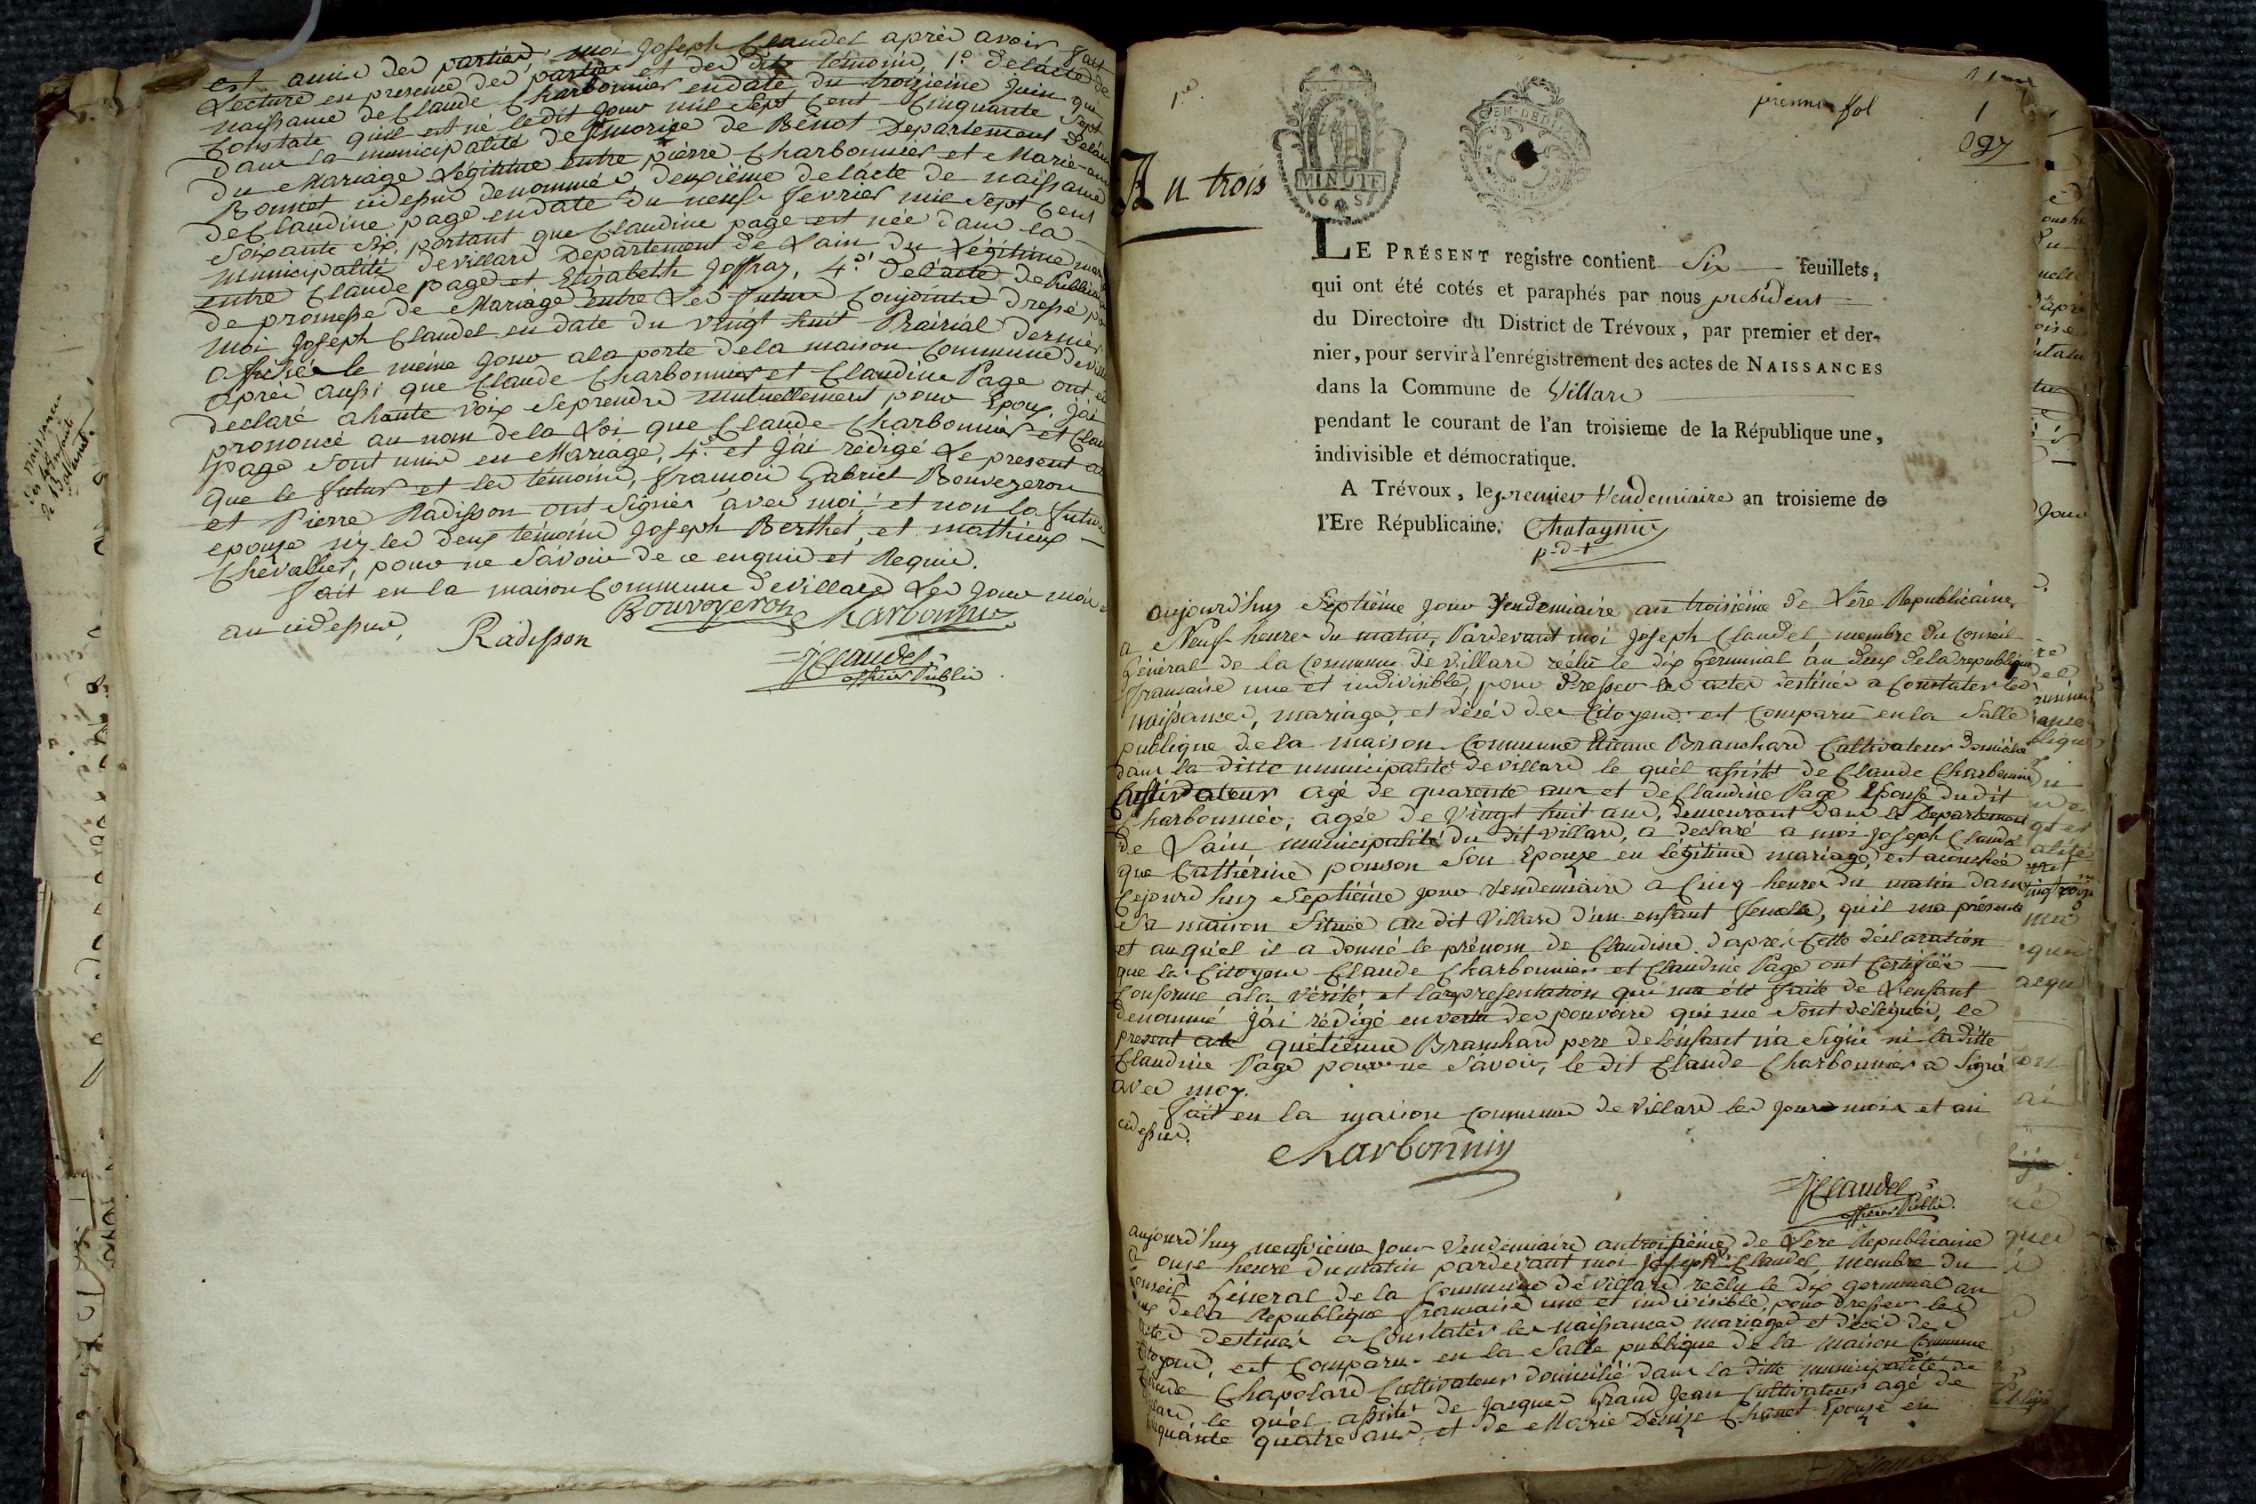 est amis des parties, moi Joseph Claudel après avoir fait
Lecture en presence des parties et des dits témoins, 1.º de lácte de
naissance de Claude Charbonnier en date du troizieme Juin qui
Constate quil est né ledit Jour mil Sept Cent Cinquante Sept
dans la municipalité de Benot Departement
du Mariage Légitime entre pierre Charbonnier et Marie
Bonnet cidessus denommés deuxième de lácte de naissance
de Claudine page en date du neuf fevrier mil Sept Cent
Soixante Six, portant que Claudine page est née dans la
municipalité de villard Departement de Lain du Légitime
entre Claude page et Elizabeth Joffray, 4.º de lácte de
de promesse de Mariage entre Les futurs Conjoints dressé
moi Joseph Claudel en date du vingt huit Prairial dernier
affichée le même Jour a la porte de la maison Commune de
après aussi que Claude Charbonnier et Claudine Page ont
declaré a haute voix Se prendre mutuellement pour Epoux, Jái
prononcé au nom de la Loi que Claude Charbonnier et
page Sont unis en Mariage, 4.º et Jái rédigé Le present
que le futur et les témoins, francois Gabriel Bouvezeron
et Pierre Radisson ont Signés avec moi, et non la future
epouse ny les deux témoins Joseph Berthet, et mathieux
Chevalier, pour ne Savoir de ce enquis et Requis.
fait en la maison Commune de villard Les Jour mois
an cidessus,
Bouvoyeron Charbonnier
Radisson
JClaudel
officier Public
An trois
MINUTE
premier fol
1
LE PRÉSENT registre contient Six feuillets,
qui ont été cotés et paraphés par nous president
du Directoire du District de Trévoux, par premier et der-
nier, pour servir à l'enrégistrement des actes de NAISSANCES
dans la Commune de Villars
pendant le courant de l'an troisieme de la République une,
indivisible et démocratique.
A Trévoux, le premier Vendemiaire an troisieme de
l'Ere Républicaine. Chataynier
p.d.t
aujourdhuy Septiéme Jour Vendemiaire an troisiéme de Lère Republicaine
a Neuf heures du matin, Pardevant moi Joseph Claudel, membre du Conseil
Général de la Commune de villard réélu le dix Germinal an deux de la republique
francaise une et indivisible, pour dresser les actes destinés a Constater les
naissances, mariages, et décès des Citoyens est Comparu en la Salle
publique de la maison Commune Etienne Branchard Cultivateur domicilié
dans la ditte municipalité de villard le quél assisté de Claude Charbonnier
Cultivateur agé de quarente ans et de Claudine Page Epouse dudit
Charbonnier, agée de Vingt huit ans, demeurant dans le Departement
de Lain municipalité du dit villard, a declaré a moi Joseph Claudel
que Cathérine ponson Son Epouze en légitime mariage, est acouchée
Cejourdhuy Septiéme Jour Vendemiaire a Cinq heures du matin dans
Sa maison Située au dit Villard d'un enfant femele, qu'il ma présenté
et auquél il a donné le prénom de Claudine. daprés Cette déclaration
que les Citoyens Claude Charbonnier et Claudine Page ont Certifiée
Conforme a la Vérité et la representation qui ma été faite de Lenfant
denommé Jái rédigé en vertu des pouvoirs qui me Sont délégués, le
present acte quétienne Branchard pere de lénfant ná Signé ni la ditte
Claudine Page pour ne Savoir, le dit Claude Charbonnier a Signé
avec moy.
fait en la maison commune de villard les Jour mois et an
cidessus.
Charbonnier
JClaudel
officier Public.
aujourdhuy neufvième Jour Vendemiaire an troisiéme de Lère Republicaine
a onze heure du matin pardevant moi Joseph Claudel, membre du
Conseil Géneral de la Commune de villard reélu le dix germinal an
deux de la Republique francaise une et indivisible, pour dresser les
actes destinés a Constater les naissances mariages et décès des
Citoyens, est Comparu en la Salle publique de la maison Commune
Claude Chapolard Cultivateur domicilié dans la ditte municipalité de
villard, le quél assisté de Jacques Grand Jean Cultivateur agé de
Cinquante quatre ans et de Marie Denize Chanet Epouse en